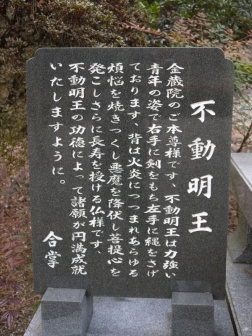 不動明王
金蔵院のご本尊様です、不動明王は力強い
青年の姿で右手に剣をもち左手に縄をさげ
ております、背は火炎につつまれあらゆる
煩悩を焼きつくし悪魔を降伏し菩提心を
発こしさらに長寿を授ける仏様です
不動明王の功徳によって諸願が円満成就
いたしますように。
合掌